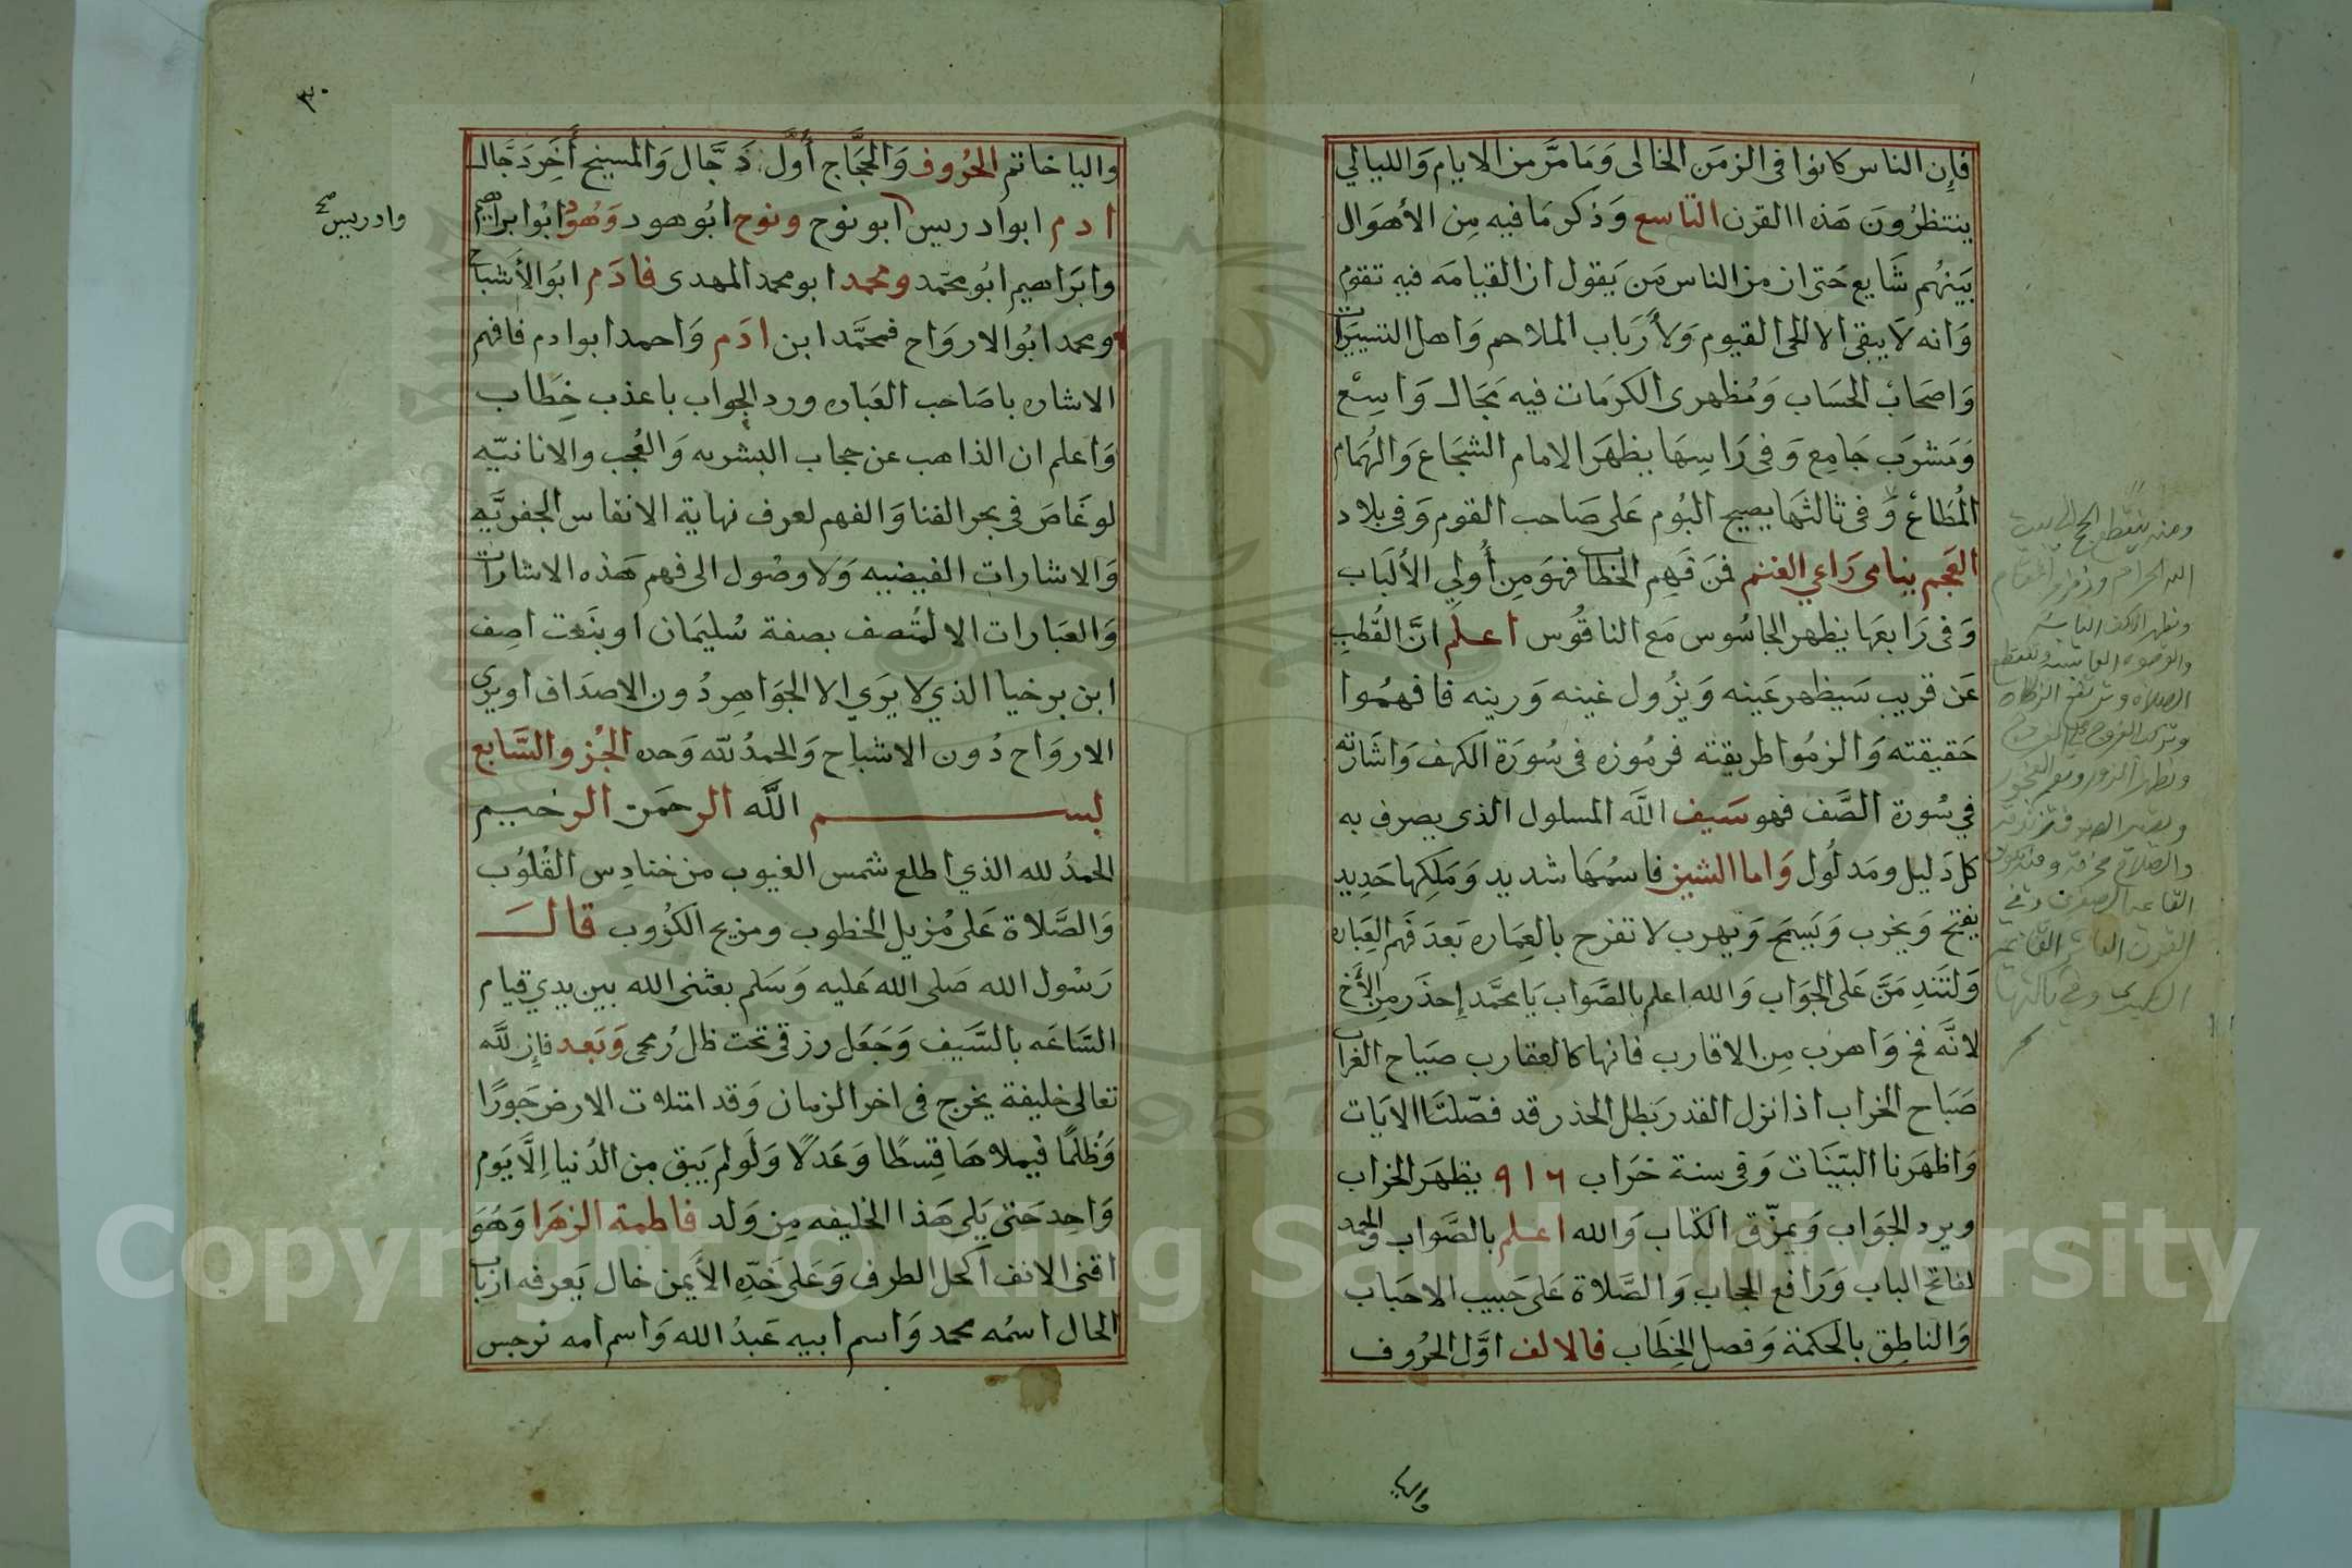 فإن الناس كانوا فى الزمَن الخالى وَمَا مَرَّ من الايام وَالليالي
ينتظرُونَ هَذه االقرن التاسع وَذكر مَا فيه مِن الأهوَال
بَينهُم شَايع حَتى ان من الناس مَن يَقول ان القيامَه فيه تقوم
وَانه لَا يبقى الا الحى القيوم وَلأرَباب الملاحم وَاهل التسييرات
وَاصحَاب الحسَاب وَمُظهرى الكرمَات فيه مَجَال وَاسِع
وَمَشرَب جَامِع وَفى رَاسِهَا يظهَر الامام الشجَاع وَالهُمَام
المُطَاع وَفى ثالثهَا يصيح البُوم عَلى صَاحب القوم وَفى بلاد
العَجم ينامى رَاعي الغنم فمَن فَهِم الخطاب فهوَ مِن أُولِي الألبَاب
وَفى رَابعهَا يظهر الجاسُوس مَع الناقوُس اعلم انَّ القُطب
عَن قريب سَيظهر عَينه وَيزُول غينه وَرينه فافهمُوا
حَقيقته وَالزمُوا طريقته فرمُوزه فى سُورَة الكهف وَاشَارته
في سُورة الصَّف فهو سَيف اللَّه المسلول الذى يصرف به
كل دَليل ومَدلُول وَاما الشيز فاسمُهَا شديد وَمَلِكها حَدِيد
يفتح وَيخرب وَيَسمَح وَيهرب لا تفرح بالعِمَاره بَعدَ فَهم العِبَاره
وَلتَندِ مَنَّ عَلى الجَوَاب وَالله اعلم بالصَّواب يَا محَّمد إحذَر مِن الأَخ
لانَّه فخ وَاهرب مِن الاقارب فانها كالعقارب صيَاح الغراب
صَبَاح الخراب اذا نزل القدر بَطل الحذر قد فصّلنَا الايَات
وَاظهَرنا البَيّنَات وَفى سنة خرَاب ٩١٦ يظهَر الخراب
ويرد الجوَاب وَيمزّق الكتاب وَالله اعلم بالصَّواب والحمد
لفاتح الباب وَرَافع الحجاب وَالصَّلاة عَلى حَبيب الاحبَاب
وَالناطِق بالحكمَة وَفصل الخِطَاب فالالف اوَّل الحُرُوف
واليا
٣٠
واليا خاتم الحُرُوف وَالحجَّاج أَوَّل دَجَّال وَالمسيح أَخِر دَجَّال
ادم ابو ادريس ابو نوح ونوح ابُو هود وَهُود ابُوا براهيم
وادريس صح
وابَراهيم ابُو محمّد ومحمد ابو محمد المهدى فادَم ابُو الأشباح
ومحمد ابُو الارواح فمحمَّد ابن ادَم وَاحمد ابو ادم فافهم
الاشاره ياصَاحب العبَاره ورد الجواب باعذب خِطَاب
وَاعلم ان الذاهب عن حجاب البشريه وَالعُجب والانانيّه
لو غَاصَ فى بحر الفنا وَالفهم لعرف نهاية الانفاس الجفريَّه
وَالاشارات الفيضيه وَلا وصُول الى فهم هَذه الاشارات
وَالعبَارات الا لمُتصف بصفة سُليمَان او بنَعت اصِف
ابن برخيا الذي لا يَرَي الا الجوَاهِر دُون الاصدَاف اويرَى
الارواح دُون الاشباح وَالحمدُ لله وَحده الجُزو السَّابع
بســـم اللَّه الرحمَن الرحيم
الحمدُ لله الذي اطلع شمس الغيوب من حنادِس القُلوُب
وَالصَّلاة عَلى مُزيل الخطوب ومزيح الكرُوب قال
رَسُول الله صَلى الله عَليه وَسَلم بعثنى الله بين يدي قيام
السَّاعَه بالسَّيف وَجَعَل رزقى تحت ظل رُمحى وَبَعد فإن للَّه
تعالى خليفة يخرج فى اخر الزمان وَقد امتلات الارض جَورًا
وَظُلمًا فيملاهَا قِسطًا وَعَدلًا وَلَو لم يَبق مِن الدُنيا إلَّا يَوم
وَاحِد حَتى يَلى هَذا الخليفه مِن وَلد فاطمة الزهرَا وَهُوَ
اقنى الانف اكحل الطرف وَعَلى خَدّه الأَيمن خال يَعرفه ارباب
الحال اسمُه محمد وَاسم ابيه عَبدُ الله وَاسم امه نرجس
Copyright © King Saud University
1957